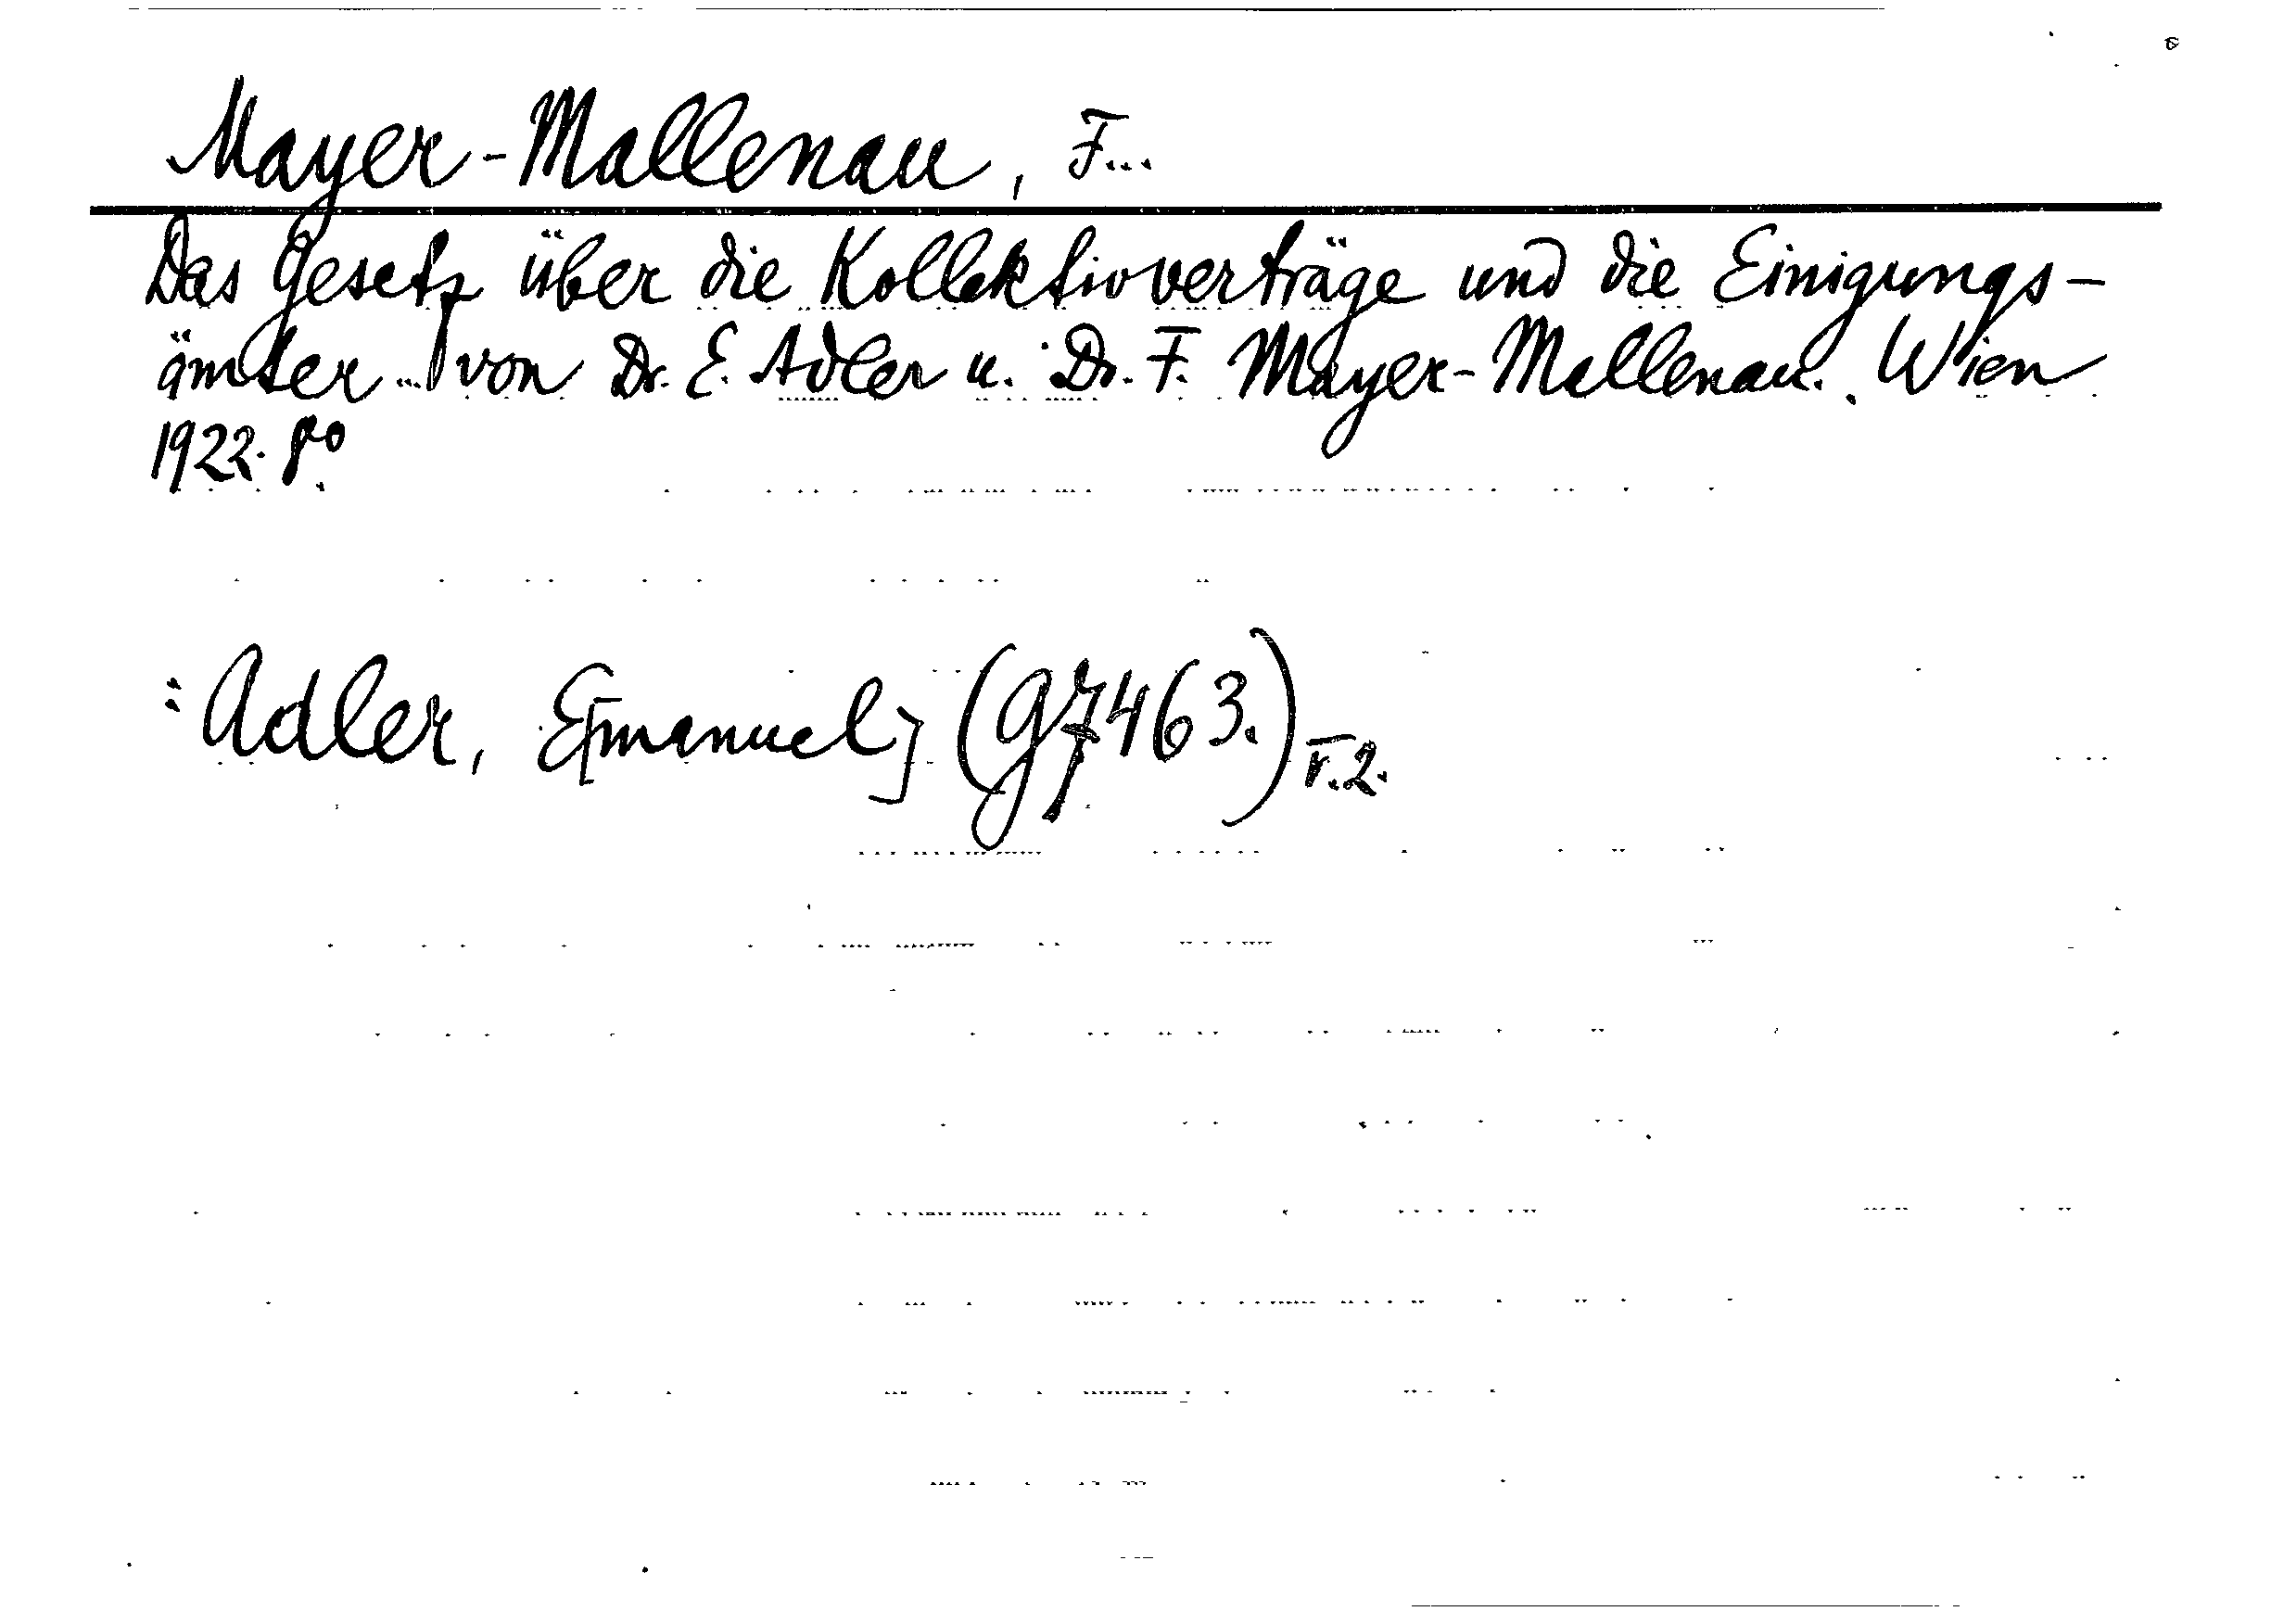 Mayer-Mallenau, F...
Das Gesetz über die Kollektivverträge und die Einigungs-
ämter... von Dr. E. Adler u. Dr. F. Mayer-Mallenau. Wien
1922. 8°
: Adler, E[manuel] (G7463.) V.2.